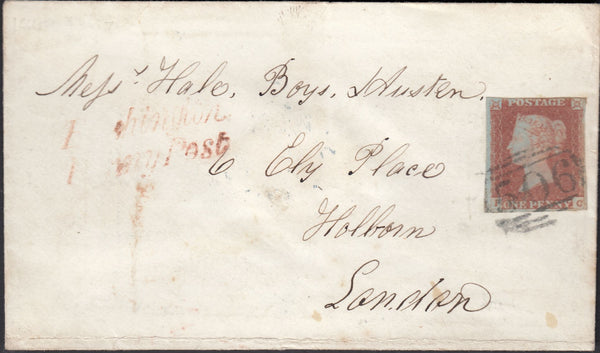 Messrs Hale, Boys, & Austen,
6 Ely Place
Holborn
London
Post
POSTAGE
ONE PENNY
C